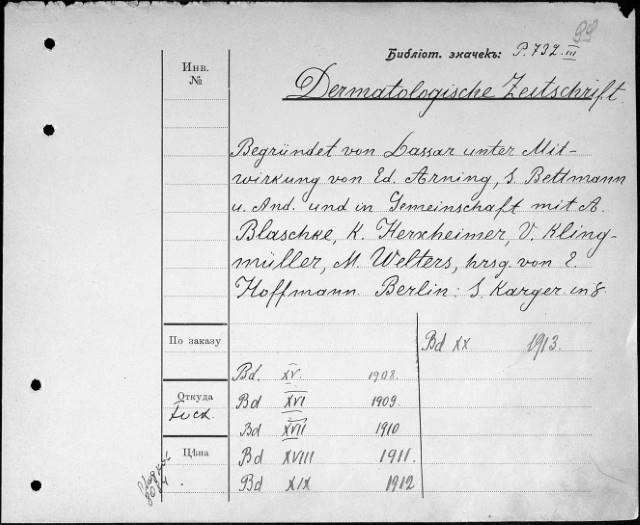 99
Библіот. значекъ: P. 732. III
Инв.
№
Dermatologische Zeitschrift.
Begründet von Lassar unter Mit-
wirkung von Ed. Arning, S. Bettmann
u. And. und in Gemeinschaft mit A.
Blaschke, K. Herxheimer, V. Kling-
müller, M. Welters, hrsg. von E.
Hoffmann. Berlin: S. Karger. in 8.
По заказу
Bd XX 1913.
Bd. XV 1908.
Откуда
Bd XVI 1909.
Bd XVII 1910
Цѣна
Bd XVIII 1911.
Bd XIX 1912